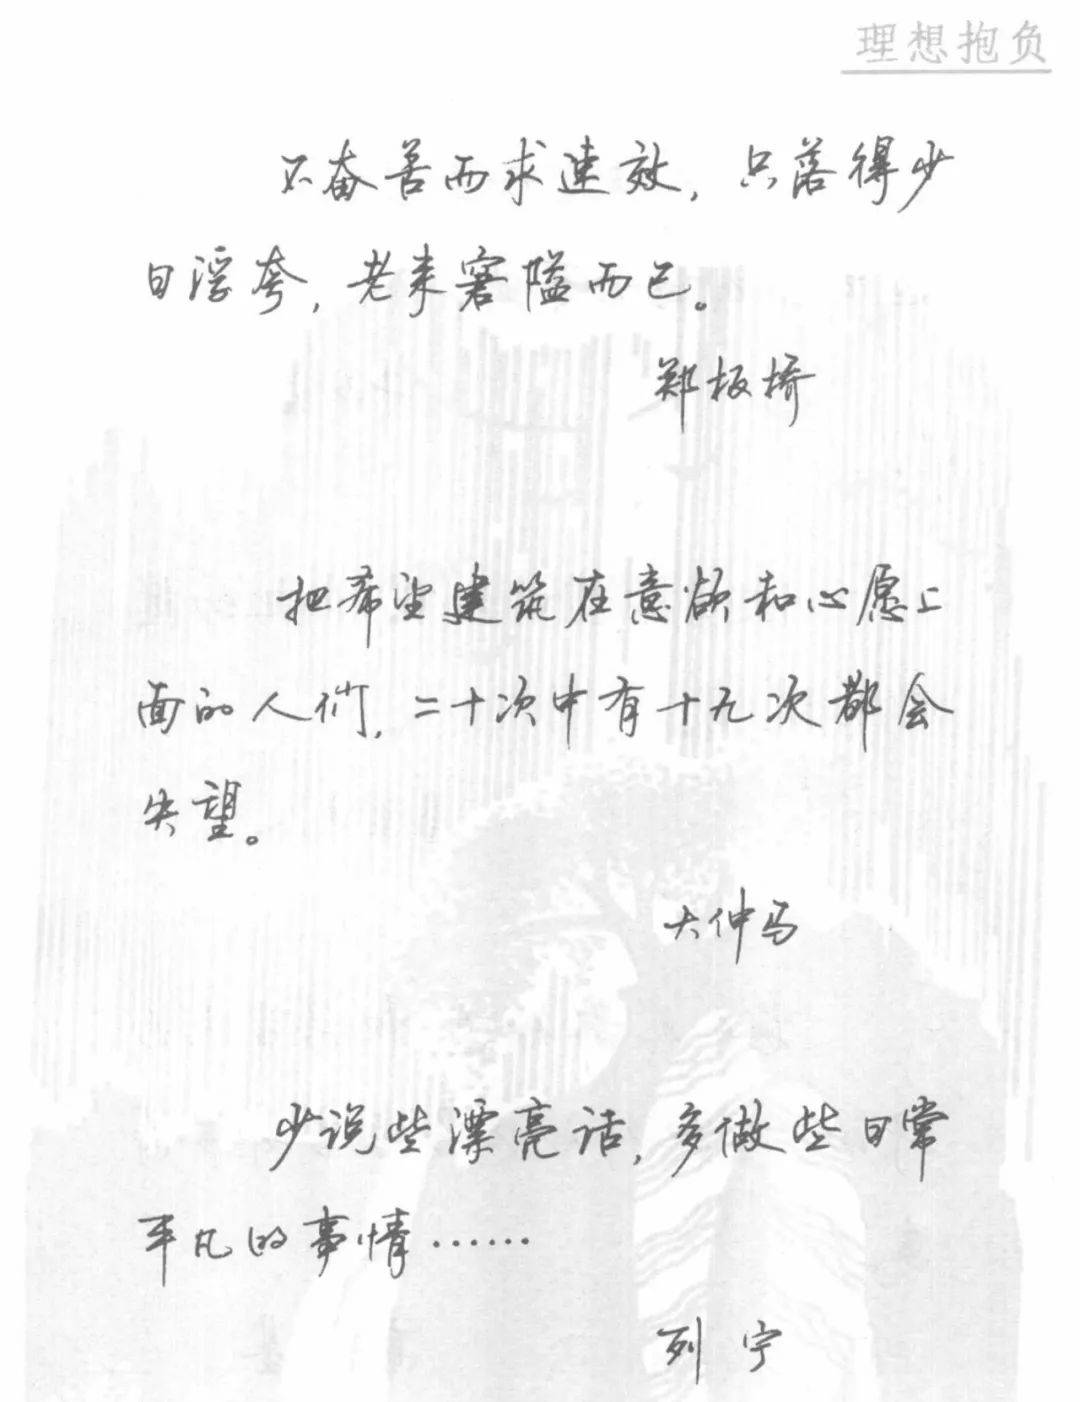 理想抱负
不奋苦而求速效，只落得少
日浮夸，老来窘隘而已。
郑板桥
把希望建筑在意欲和心愿上
面的人们，二十次中有十九次都会
失望。
大仲马
少说些漂亮话，多做些日常
平凡的事情……
列宁